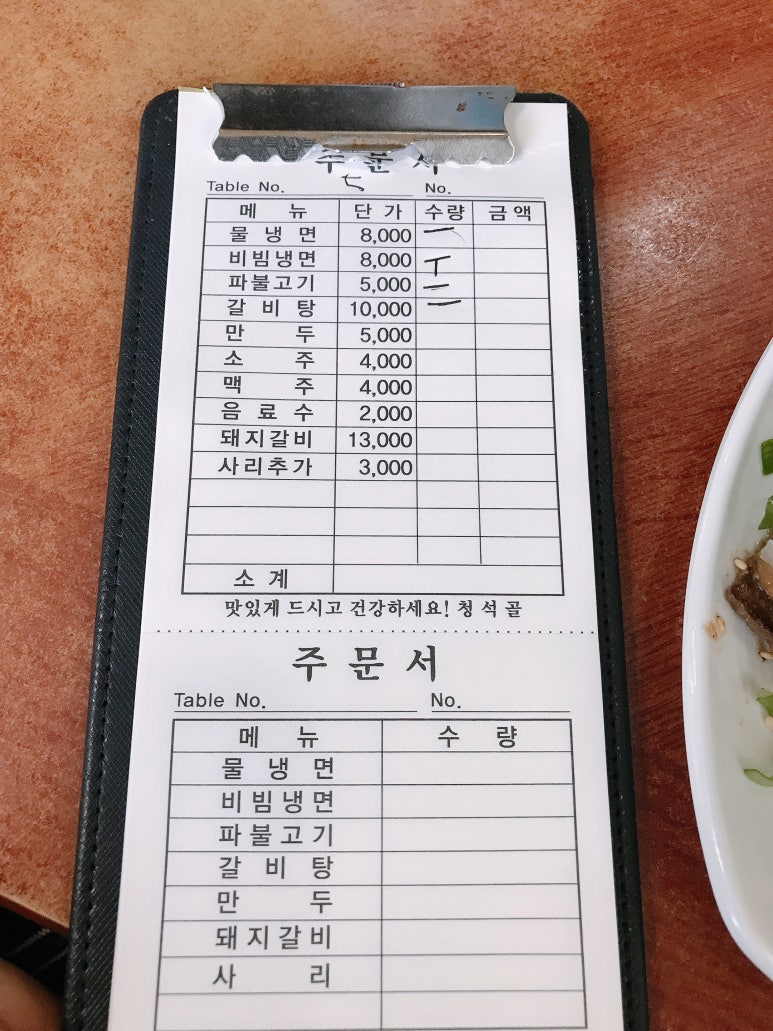 주문서
Table No. 5 No.
메 뉴 단 가 수량 금액
물 냉 면 8,000 一
비빔냉면 8,000 T
파불고기 5,000 二
갈 비 탕 10,000 一
만 두 5,000
소 주 4,000
맥 주 4,000
음 료 수 2,000
돼지갈비 13,000
사리추가 3,000
소 계
맛있게 드시고 건강하세요! 청 석 골
주 문 서
Table No. No.
메 뉴 수 량
물 냉 면
비빔냉면
파불고기
갈 비 탕
만 두
돼지갈비
사 리